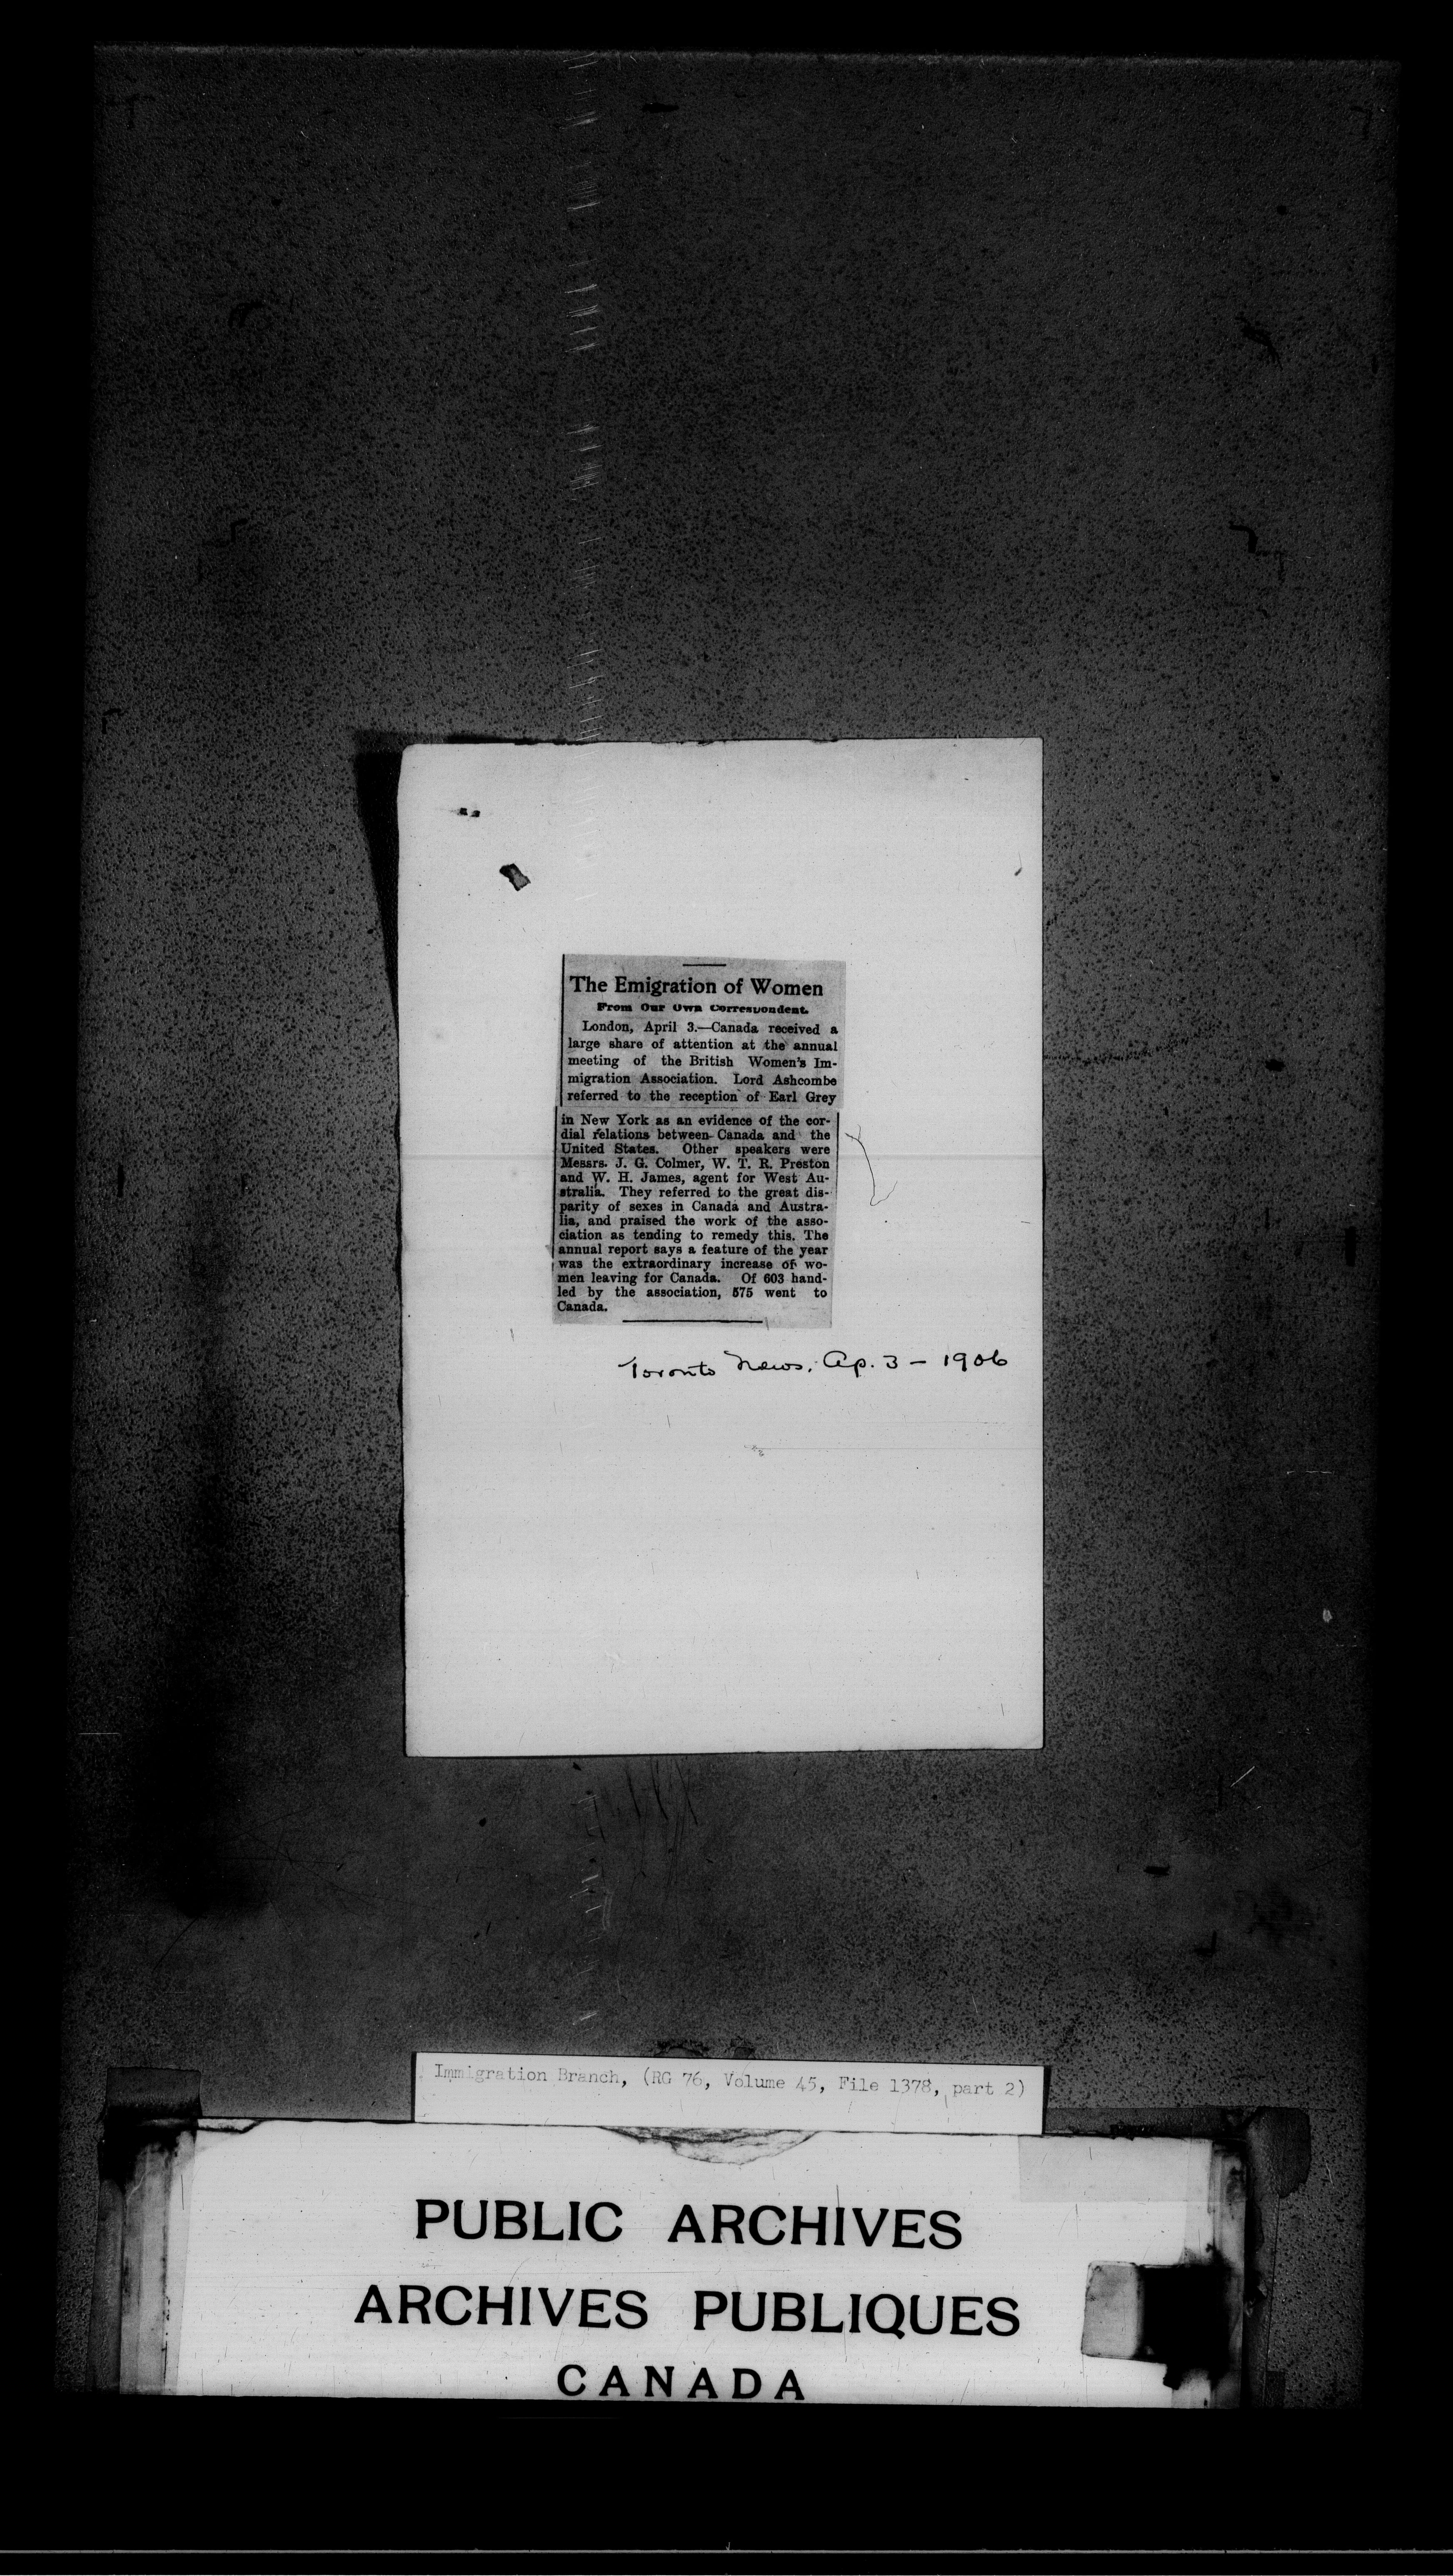 The Emigration of Women
From Our Own Correspondent.
London, April 3.—Canada received a
large share of attention at the annual
meeting of the British Women's Im-
migration Association. Lord Ashcombe
referred to the reception of Earl Grey
in New York as an evidence of the cor-
dial relations between Canada and the
United States. Other speakers were
Messrs. J. G. Colmer, W. T. R. Preston
and W. H. James, agent for West Au-
stralia. They referred to the great dis-
parity of sexes in Canada and Austra-
lia, and praised the work of the asso-
ciation as tending to remedy this. The
annual report says a feature of the year
was the extraordinary increase of wo-
men leaving for Canada. Of 603 hand-
led by the association, 575 went to
Canada.
Toronto News, Ap. 3 - 1906
Immigration Branch, (RG 76, Volume 45, File 1378, part 2)
PUBLIC ARCHIVES
ARCHIVES PUBLIQUES
CANADA